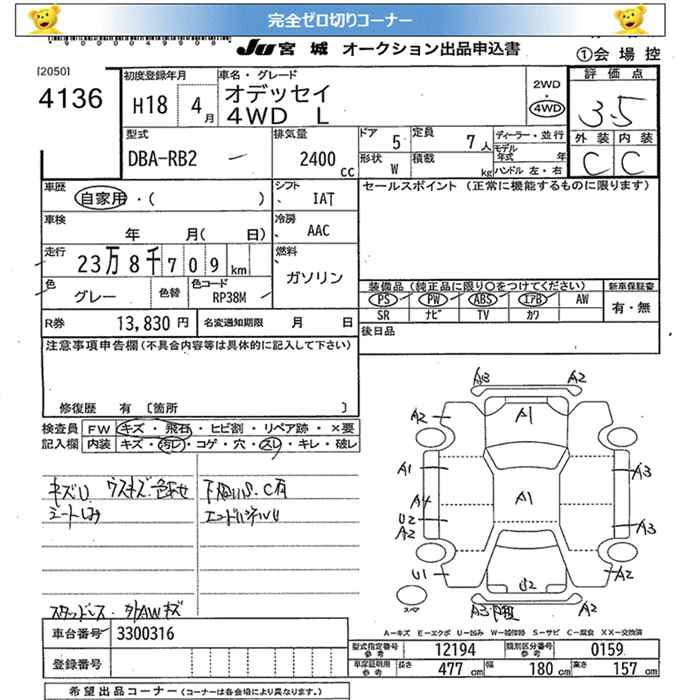 完全ゼロ切りコーナー
JU 宮城 オークション出品申込書
①会場控
[2050]
4136
初度登録年月
H18 4月
車名・グレード
オデッセイ
4WD L
2WD
・
4WD
評価点
3.5
外装 内装
C C
型式
DBA-RB2
排気量
2400cc
ドア 5
定員 7人
形状 W
積載 kg
ディーラー・並行
モデル年式 年
ハンドル 左・右
車歴
自家用・( )
シフト
IAT
セールスポイント (正常に機能するものに限ります)
車検
年 月( 日)
冷房
AAC
走行
23万8千709km
燃料
ガソリン
色
グレー
色替
色コード
RP38M
装備品 (純正品に限り○をつけてください)
新車保証書
PS PW ABS エアB AW
有・無
SR ナビ TV カワ
R券 13,830円
名変通知期限 月 日
後日品
注意事項申告欄 (不具合内容等は具体的に記入して下さい)
修復歴 有 〔箇所 〕
検査員記入欄
FW キズ・飛石・ヒビ割・リペア跡・×要
内装 キズ・汚レ・コゲ・穴・スレ・キレ・破レ
キズU ウスキズ・色あせ
シートしみ
下廻りS.C有
スタッドレス・外AWキズ
A3 A2
A2 A1
A1 A3
A4 A1
U2
A2 A3
U1 U2 A2
A3 A2
スペア
A-キズ E-エクボ U-凹み W-補修跡 S-サビ C-腐食 XX-交換済
車台番号 3300316
登録番号
型式指定番号 参考 12194
類別区分番号 参考 0159
車庫証明用 参考 長さ 477cm 幅 180cm 高さ 157cm
希望出品コーナー (コーナーは各会場により異なります。)